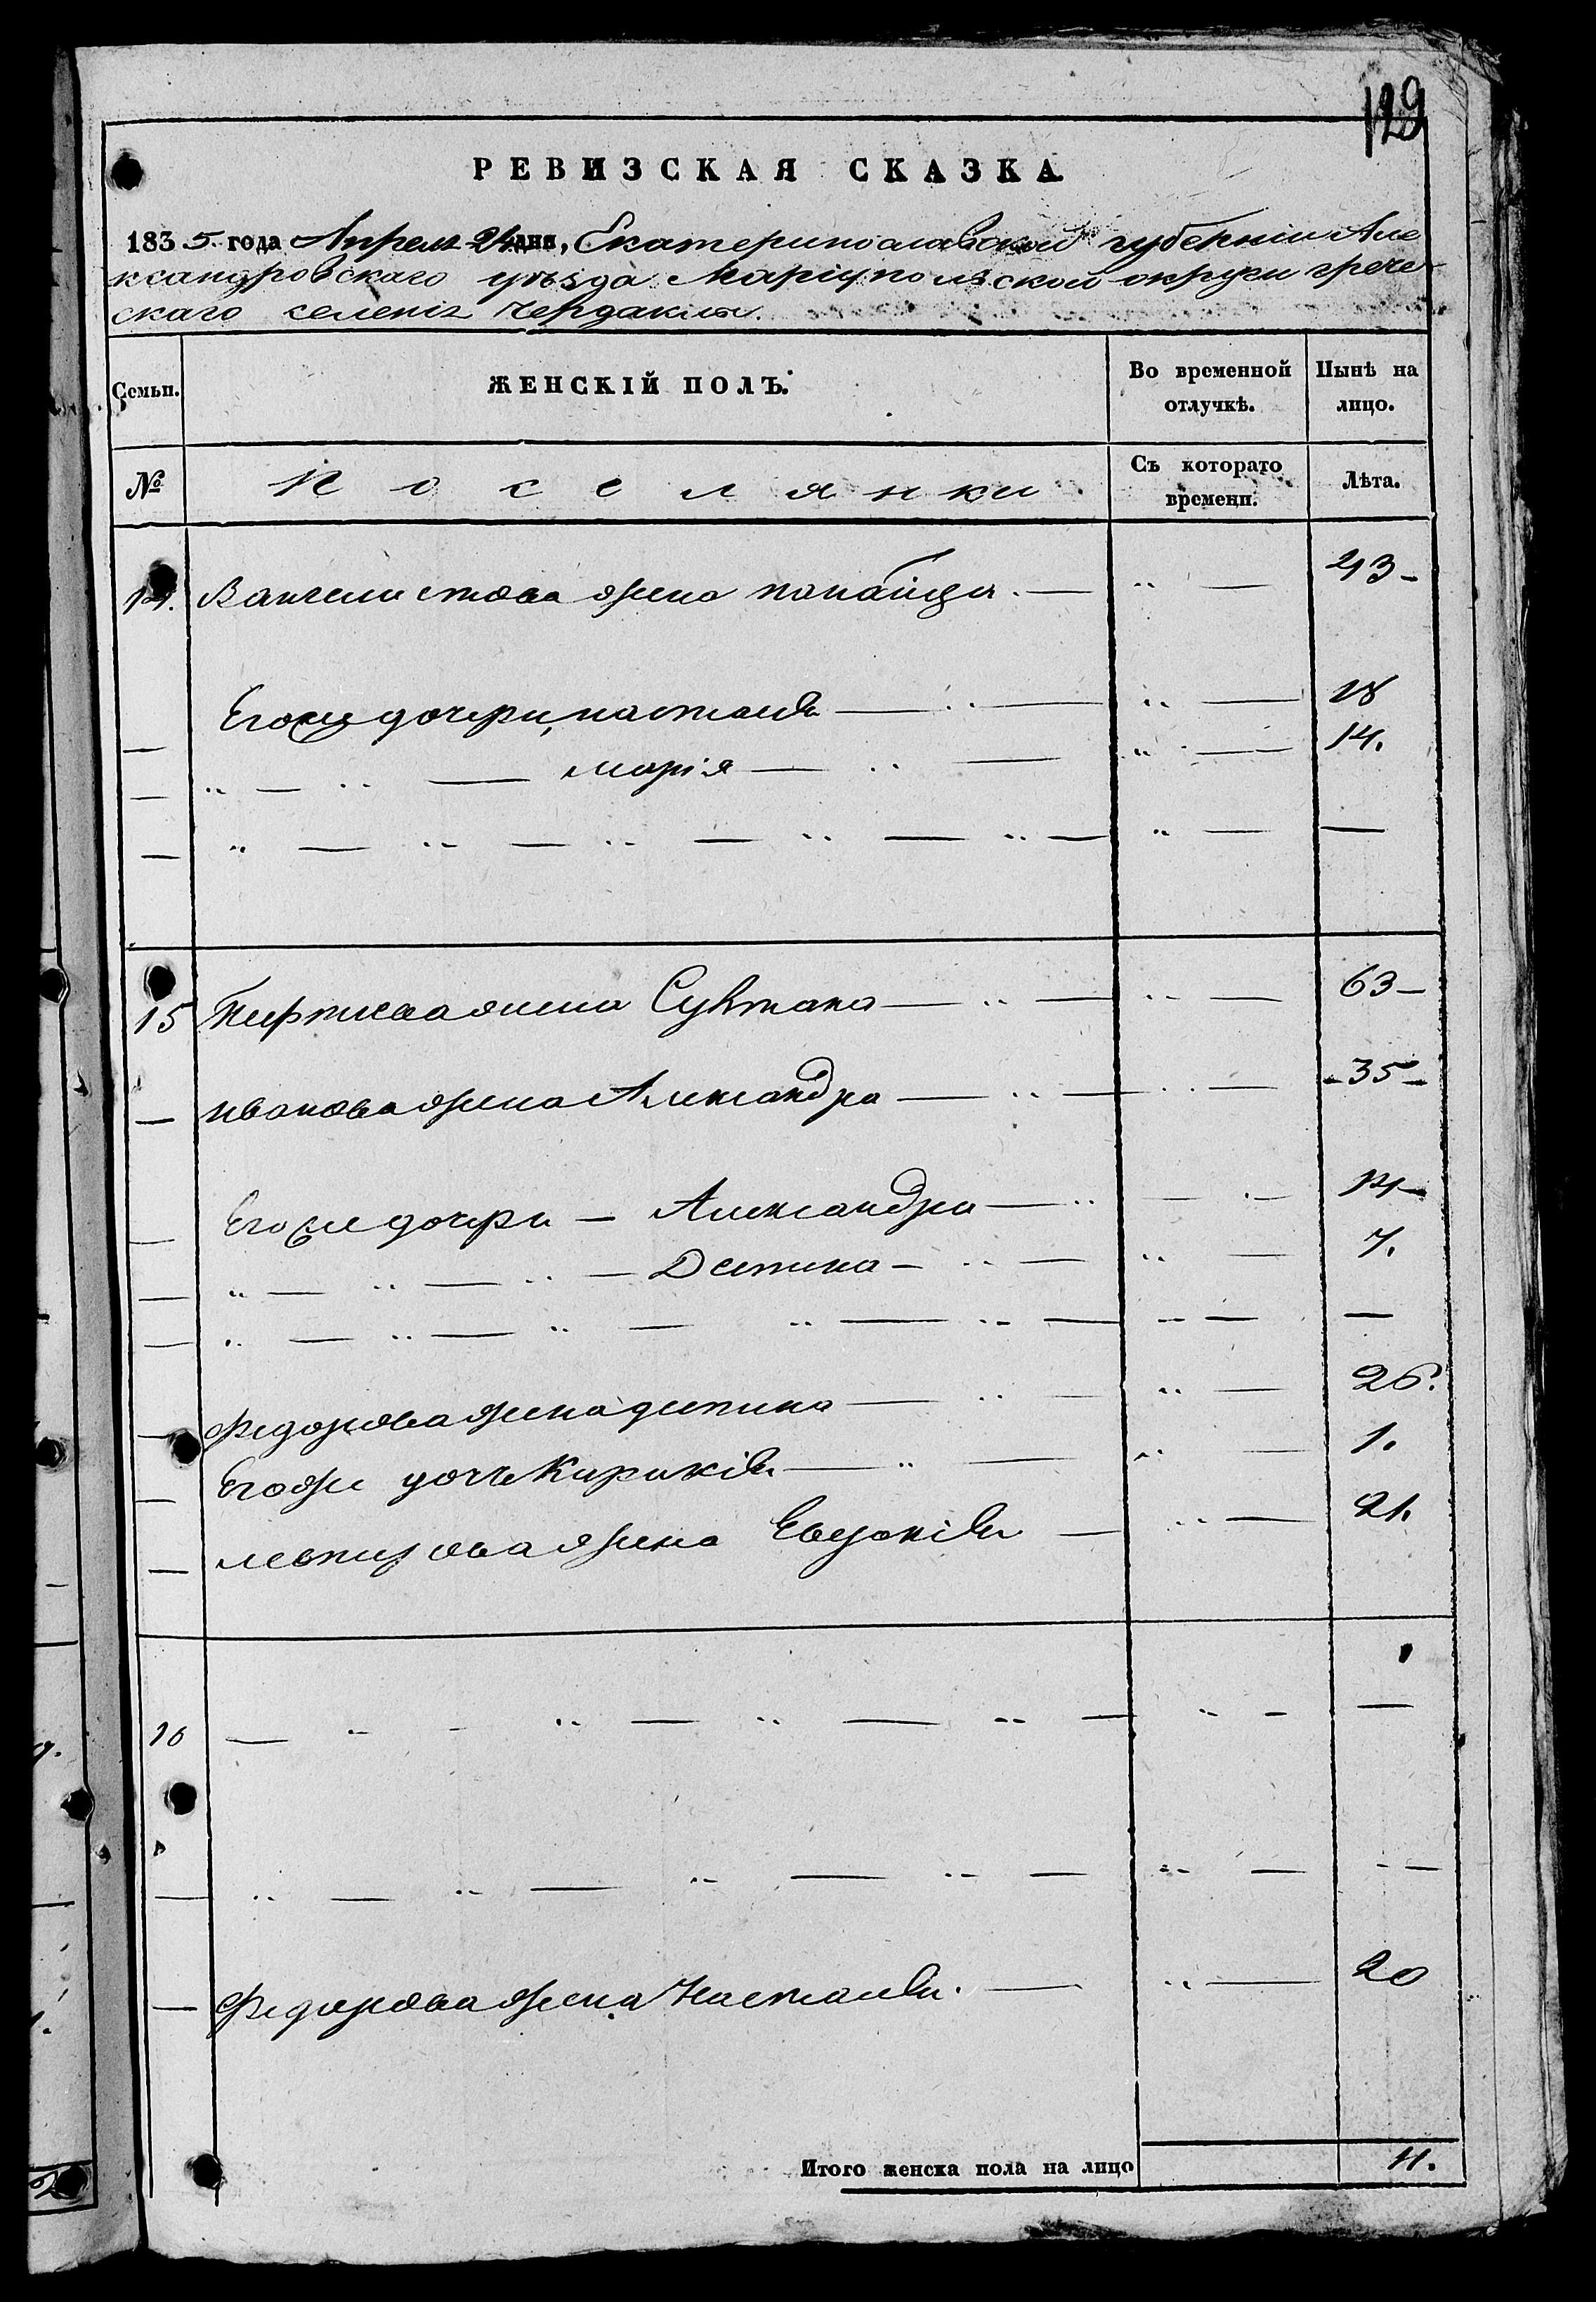 129
РЕВИЗСКАЯ СКАЗКА.
1835. года Апреля 24 дня, Екатеринославской губернии Але
ксандровскаго уѣзда Маріупольской округи грече
скаго селенія Чердаклы.
Семьи. ЖЕНСКІЙ ПОЛЪ. Во временной отлучкѣ. Нынѣ на лицо.
№ Поселянки Съ котораго времени. Лѣта.
14. жена 43
Егоже дочери, настасія 18
марія 14.
15 жена Султана 63
Иванова жена Александра 35
Егоже дочери Александра 14
Деспина 7.
Федорова жена деспина 26.
Егоже дочь Кирикія 1.
жена Евдокія 21.
16
Федорова жена Настасія. 20
Итого женска пола на лицо 11.